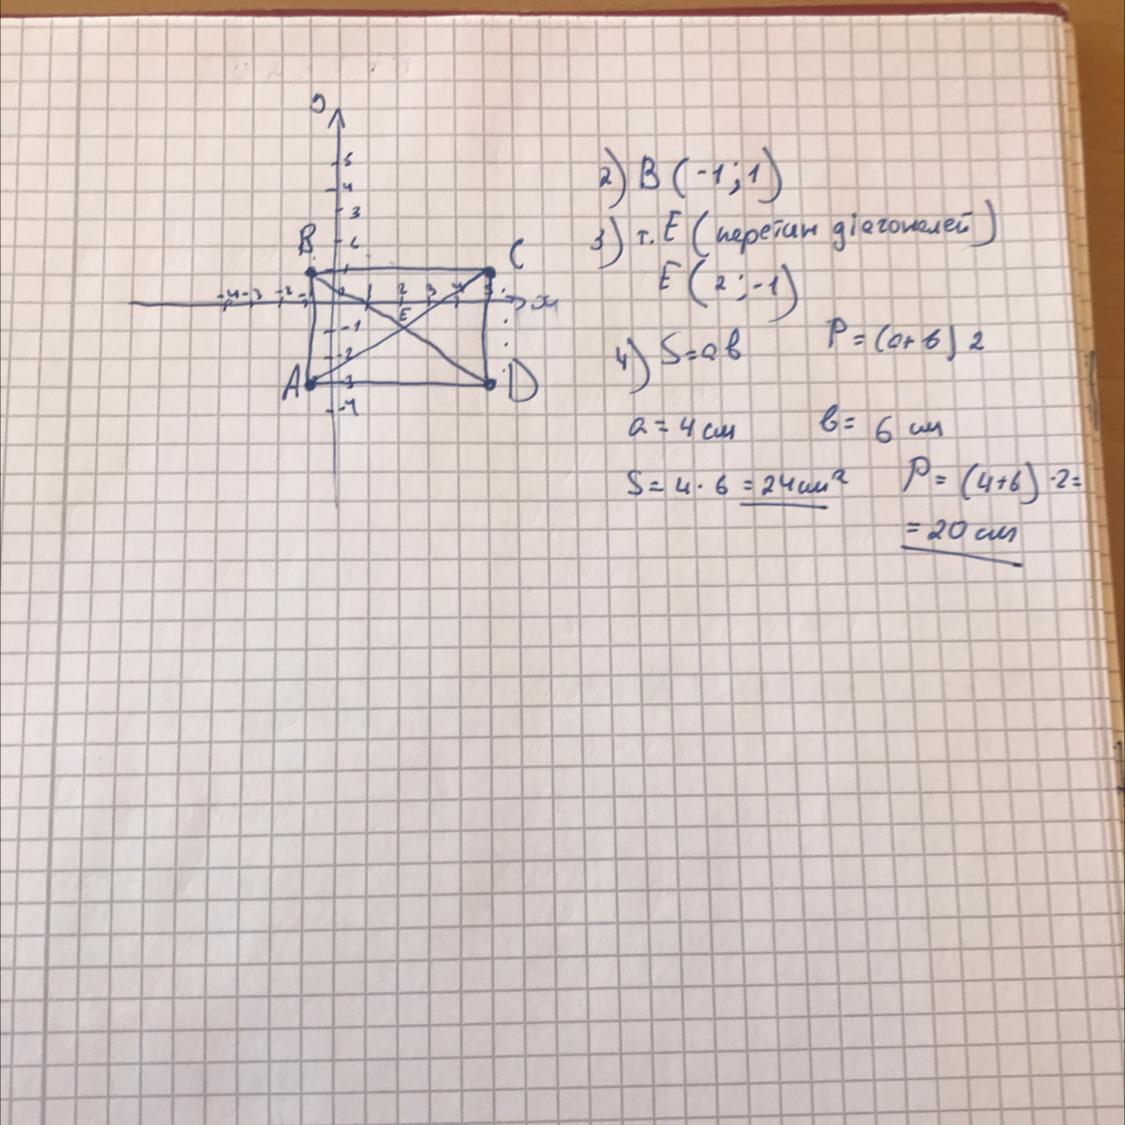 y
5
4
3
2) B (-1; 1)
B
C
3) т. E (перетин діагоналей)
-4 -3 -2 - 1 2 3 4 5 x
E (2; -1)
E
-1
4) S=ab P=(a+b) 2
-2
A -3 D
-4
a = 4 см b = 6 см
S = 4 · 6 = 24 см² P = (4+6) · 2 =
= 20 см